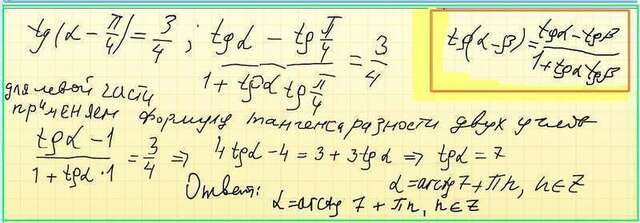 tg(α - π/4) = 3/4 ; (tgα - tg π/4)/(1 + tgα tg π/4) = 3/4
tg(α-β) = (tgα - tgβ)/(1 + tgα tgβ)
для левой части
применяем формулу тангенса разности двух углов
(tgα - 1)/(1 + tgα·1) = 3/4 => 4tgα - 4 = 3 + 3tgα => tgα = 7
α = arctg 7 + πn, n∈Z
Ответ: α = arctg 7 + πn, n∈Z